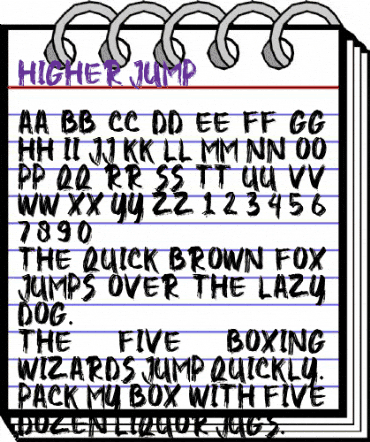 HIGHER JUMP
AA BB CC DD EE FF GG
HH II JJ KK LL MM NN OO
PP QQ RR SS TT UU VV
WW XX YY ZZ 1 2 3 4 5 6
7 8 9 0
THE QUICK BROWN FOX
JUMPS OVER THE LAZY
DOG.
THE FIVE BOXING
WIZARDS JUMP QUICKLY.
PACK MY BOX WITH FIVE
DOZEN LIQUOR JUGS.